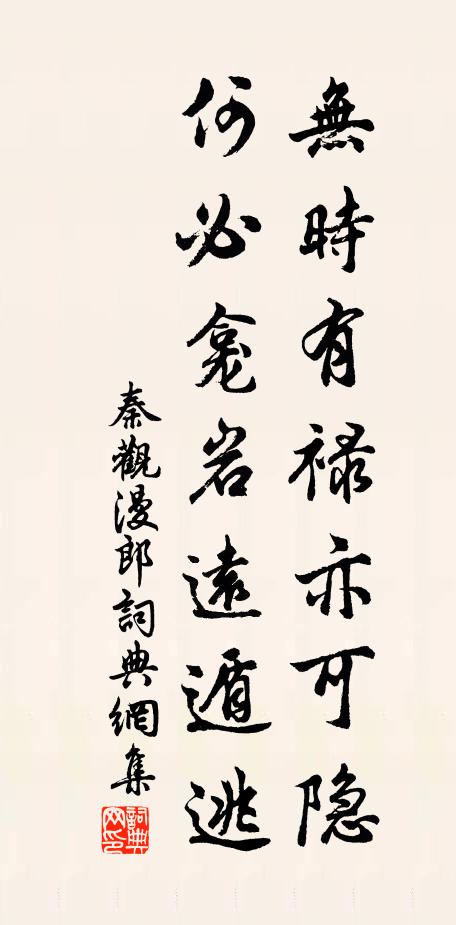 無時有禄亦可隐
何必龛岩遠遁逃
秦觀漫郎詞典網集
詞典網印